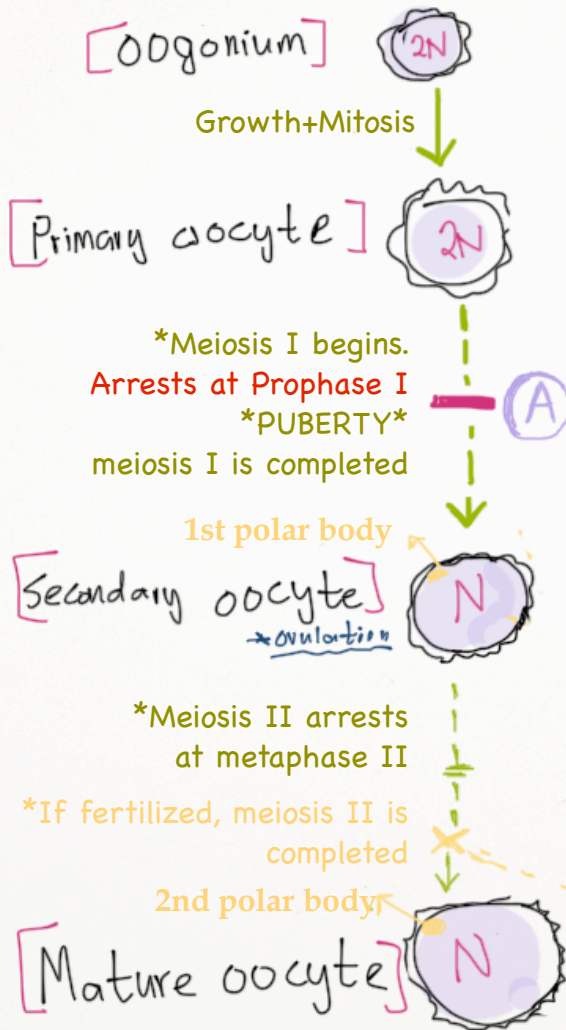 [Oogonium] 2N
Growth+Mitosis
[Primary oocyte] 2N
*Meiosis I begins.
Arrests at Prophase I
A
*PUBERTY*
meiosis I is completed
1st polar body
[Secondary oocyte] N
*ovulation
*Meiosis II arrests
at metaphase II
*If fertilized, meiosis II is
completed
2nd polar body
[Mature oocyte] N